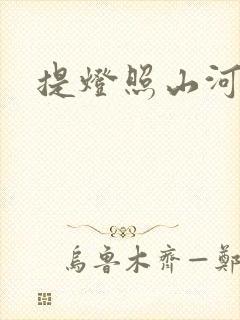 提燈照山河
烏魯木齊—鄭